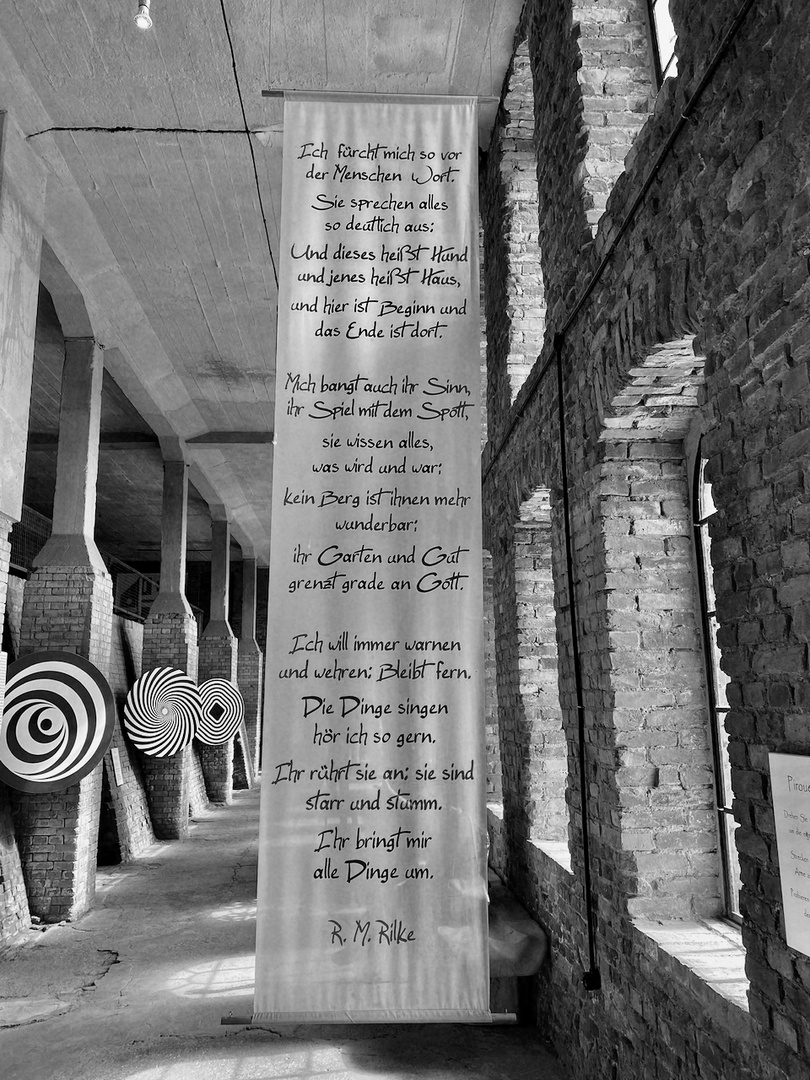 Ich fürcht mich so vor
der Menschen Wort.
Sie sprechen alles
so deutlich aus:
Und dieses heißt Hund
und jenes heißt Haus,
und hier ist Beginn und
das Ende ist dort.
Mich bangt auch ihr Sinn,
ihr Spiel mit dem Spott,
sie wissen alles,
was wird und war;
kein Berg ist ihnen mehr
wunderbar;
ihr Garten und Gut
grenzt grade an Gott.
Ich will immer warnen
und wehren: Bleibt fern.
Die Dinge singen
hör ich so gern.
Ihr rührt sie an: sie sind
starr und stumm.
Ihr bringt mir
alle Dinge um.
R. M. Rilke
Piroue
Drehen Sie